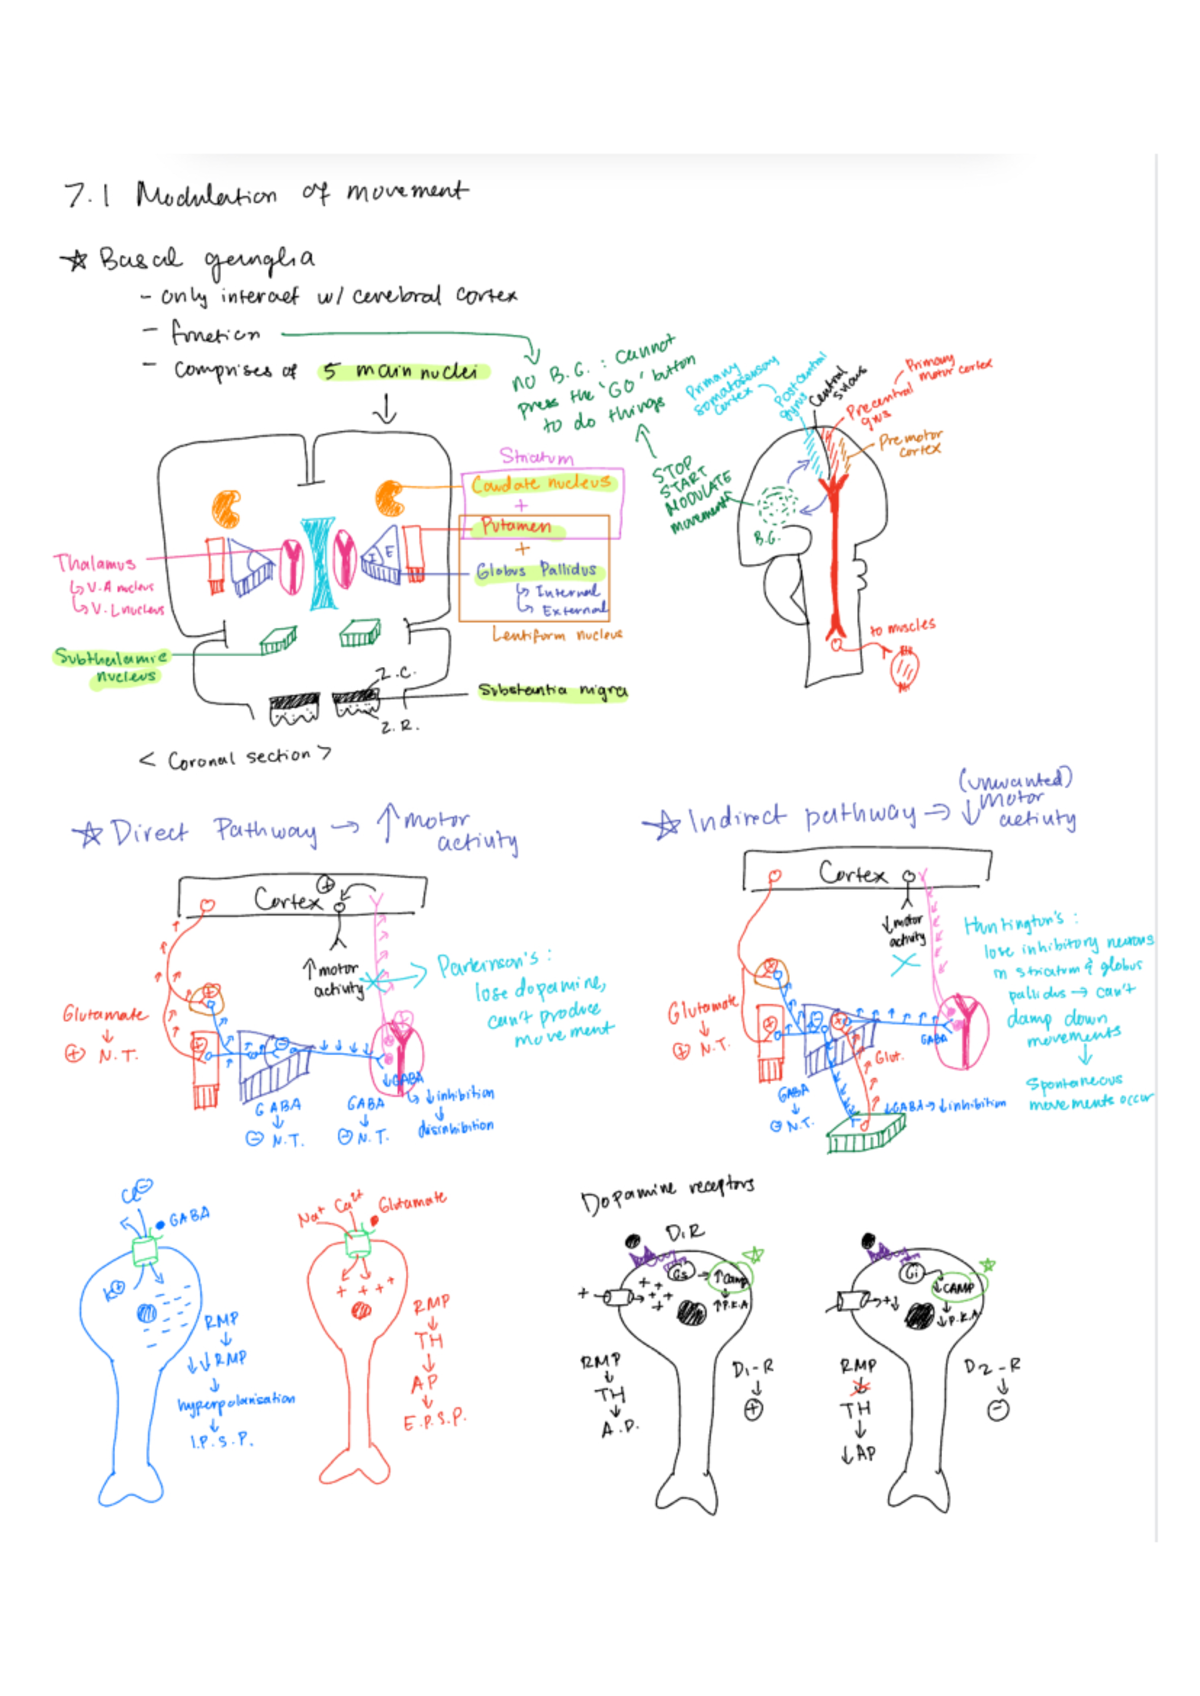 7.1 Modulation of movement
☆ Basal ganglia
- only interact w/ cerebral cortex
- function
- comprises of 5 main nuclei
no B.G. : cannot
press the 'GO' button
to do things
STOP
START
MODULATE
movements
B.G.
Primary
somatosensory
cortex
Postcentral
gyrus
Central
sulcus
Precentral
gyrus
Primary
motor cortex
Premotor
cortex
to muscles
Striatum
Caudate nucleus
+
Putamen
+
Globus Pallidus
↳ Internal
↳ External
Lentiform nucleus
I E
Thalamus
↳ V.A nucleus
↳ V.L nucleus
Subthalamic
nucleus
Z.C.
Substantia nigra
Z.R.
< Coronal section >
☆ Direct Pathway → ↑ motor
activity
Cortex
⊕
↑ motor
activity
Parkinson's :
lose dopamine,
can't produce
movement
Glutamate
↓
⊕ N.T.
GABA
↓
⊖ N.T.
GABA
↓
⊖ N.T.
↓GABA
↳ ↓ inhibition
↓
disinhibition
☆ Indirect pathway → ↓ motor
(unwanted)
activity
Cortex
↓ motor
activity
Huntington's :
lose inhibitory neurons
in striatum & globus
pallidus → can't
damp down
movements
↓
Spontaneous
movements occur
Glutamate
↓
⊕ N.T.
GABA
↓
⊖ N.T.
Glut.
GABA
↓GABA → ↓ inhibition
Cl⊖
GABA
K⊕
RMP
↓
↓↓RMP
↓
hyperpolarisation
↓
I.P.S.P.
Na⁺ Ca²⁺
Glutamate
+ + + +
RMP
↓
TH
↓
AP
↓
E.P.S.P.
Dopamine receptors
D₁R
Gs → ↑ camp
↓
↑ P.K.A
RMP
↓
TH
↓
A.P.
D₁-R
↓
⊕
Gi
↓ CAMP
↓
↓ P.K.A
RMP
↓
TH
↓
↓ AP
D₂-R
↓
⊖